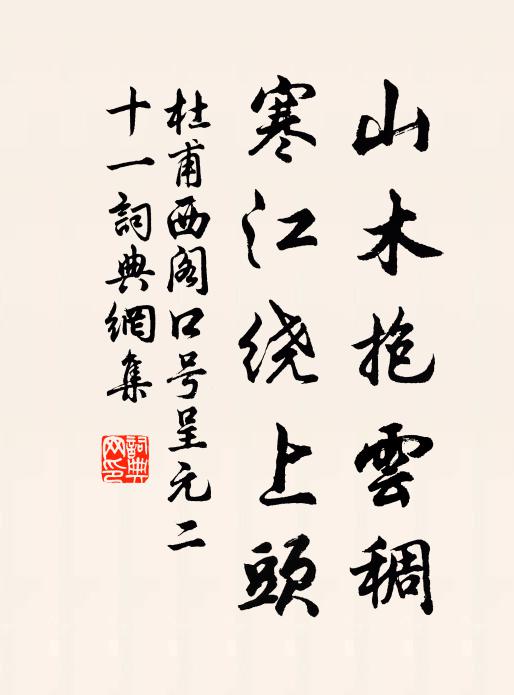 山木抱雲稠
寒江绕上頭
杜甫西阁口号呈元二
十一詞典網集
詞典网印